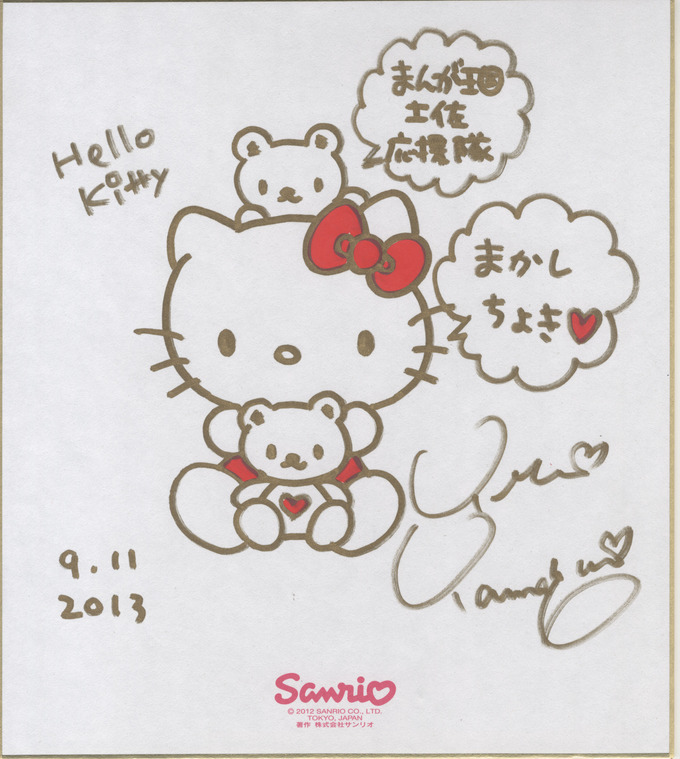 Hello
Kitty
まんが王国
土佐
応援隊
まかし
ちょき
9.11
2013
Sanrio
© 2012 SANRIO CO., LTD.
TOKYO, JAPAN
著作 株式会社サンリオ